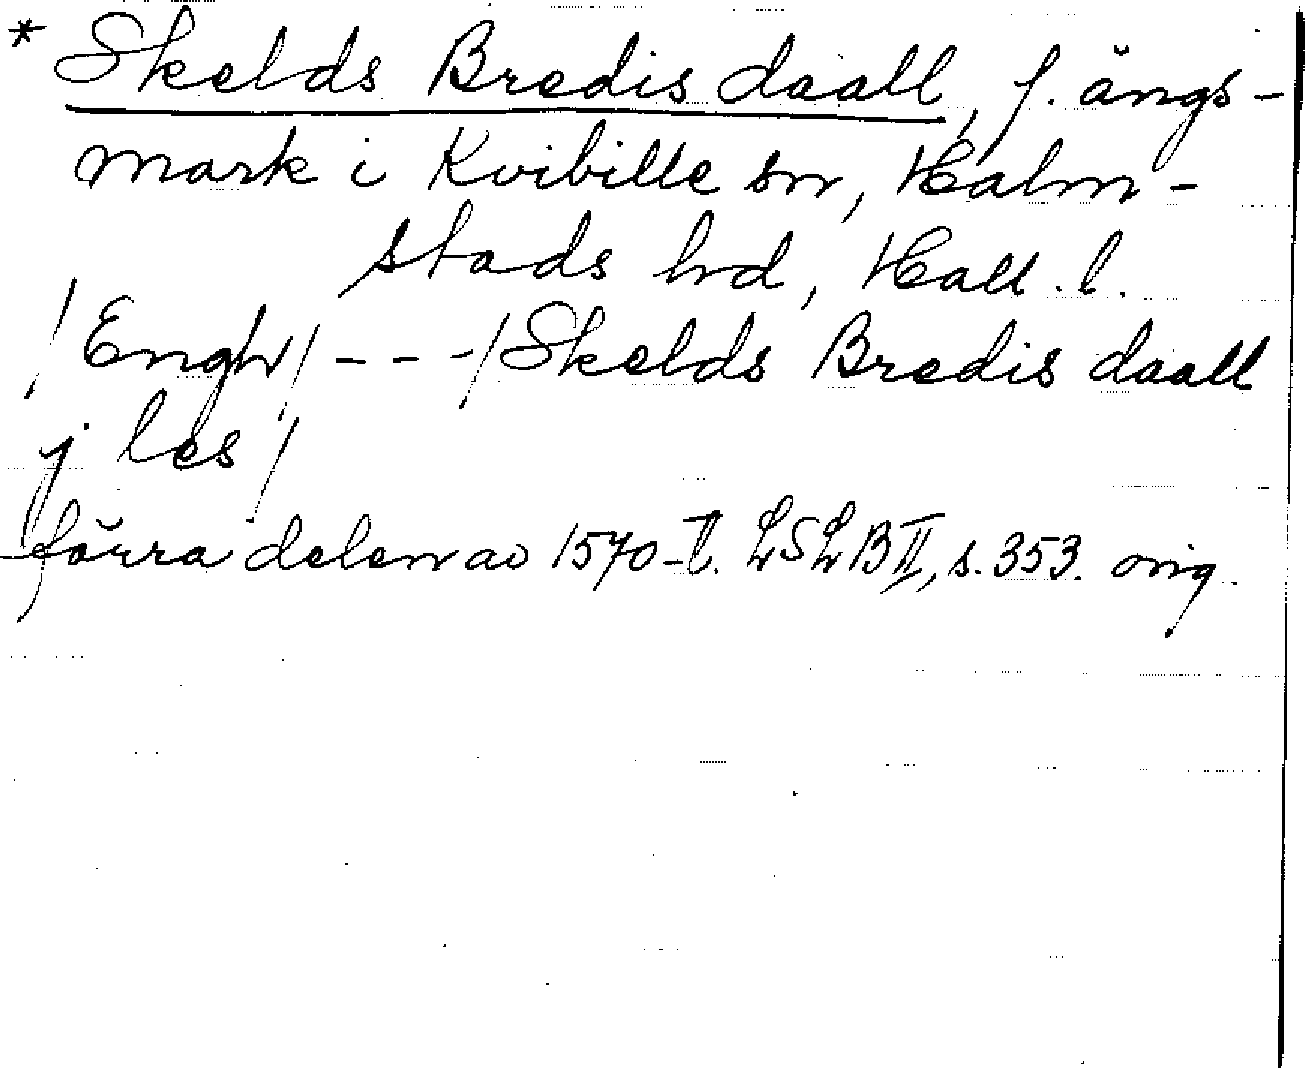 * Skelds Bredis daall, f. ängs-
mark i Kvibille sn, Halm-
stads hd, Hall. l.
/Engh/ - - - /Skelds Bredis daall
j les/
förra delen av 1570-t. LSLB II, s. 353. orig.